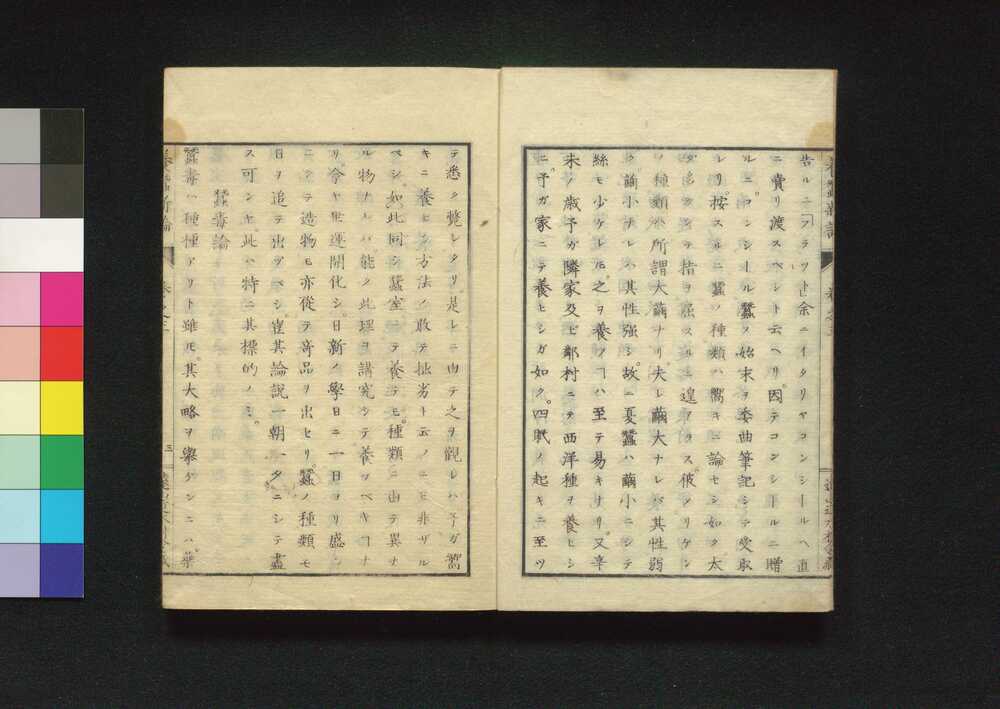 告ルニ「フラツト」余ニイタリヤコンシールヘ直
ニ賣リ渡スベシト云ヘリ。因テコンシールニ贈
ルニ。コンシールノ始末ヲ委曲筆記シテ受取
レリ。按スルニ蠶ノ種類ハ嚮キニ論セシ如ク太
指ヲ屈スルニ遑アラス。彼
ノ種類ハ所謂大繭ナリ。夫レ繭大ナレバ其性弱
ク繭小ナレハ其性強シ。故ニ夏蠶ハ繭小ニシテ
絲モ少ケレ𪜈。之ヲ養フヿハ至テ易キナリ。又辛
未ノ歳予ガ隣家及ビ鄰村ニテ西洋種ヲ養ヒシ
ニ。予ガ家ニテ養ヒシガ如ク。四眠ノ起キニ至ツ
テ悉ク斃レタリ。是レニ由テ之ヲ觀レハ予ガ嚮
キニ養ヒシ方法ノ敢テ拙劣ト云フニモ非ザル
ベシ。如此同シ蠶室ニテ養テモ。種類ニ由テ異ナ
ル物ナレバ。能ク此理ヲ講究シテ養フベキヿナ
リ。今ヤ世運開化シ。日新ノ學日ニ一日ヨリ盛ン
ニシテ造物モ亦從テ奇品ヲ出セリ。蠶ノ種類モ
日ヲ追テ出ヅベシ。豈其論説一朝一夕ニシテ盡
ス可ンヤ。此ハ特ニ其標的ノミ。
蠶毒論
蠶毒ハ種種アリト雖𪜈。其大略ヲ擧グンニハ。藥
三